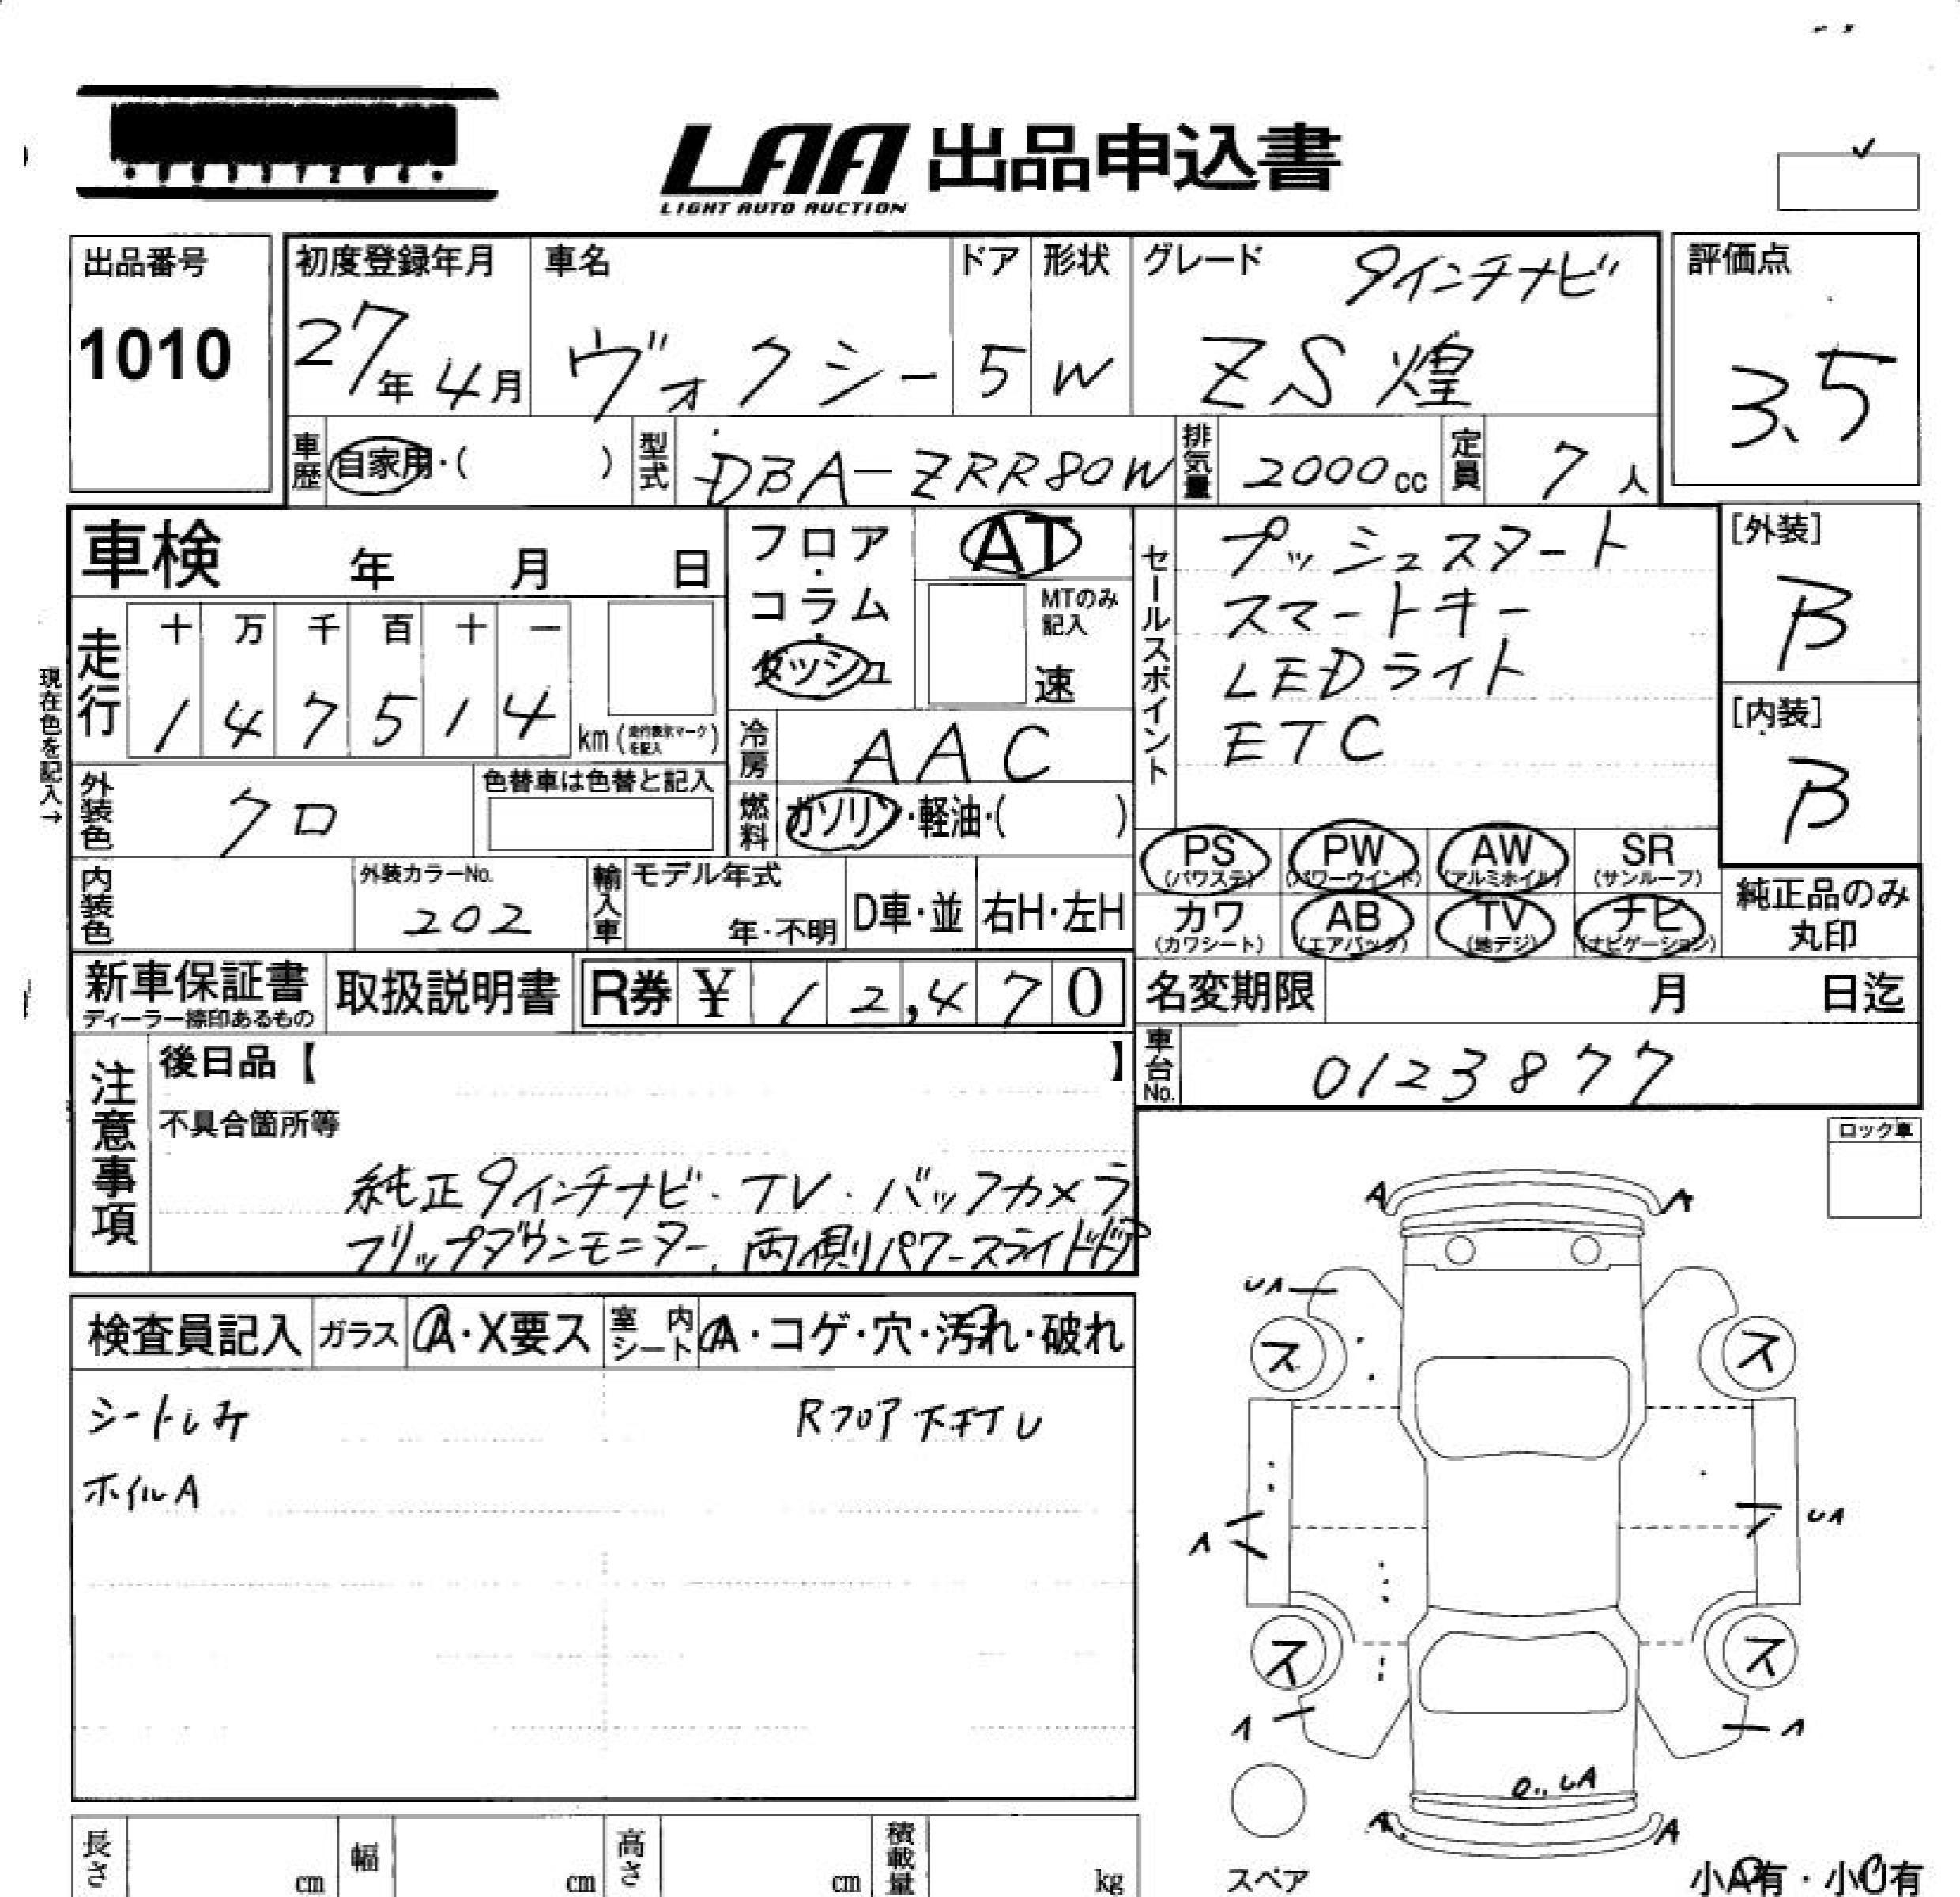 LAA 出品申込書
LIGHT AUTO AUCTION
出品番号
1010
初度登録年月
27年 4月
車名
ヴォクシー
ドア
5
形状
W
グレード
9インチナビ
ZS 煌
評価点
3.5
車歴
自家用・( )
型式
DBA-ZRR80W
排気量
2000 cc
定員
7 人
車検 年 月 日
フロア・コラム・ダッシュ
AT
MTのみ記入
速
セールスポイント
プッシュスタート
スマートキー
LEDライト
ETC
[外装]
B
[内装]
B
現在色を記入→
走行
十 万 千 百 十 一
1 4 7 5 1 4
km (走行表示マークを記入)
冷房
AAC
外装色
クロ
色替車は色替と記入
燃料
ガソリン・軽油・( )
PS (パワステ)
PW (パワーウインド)
AW (アルミホイル)
SR (サンルーフ)
カワ (カワシート)
AB (エアバック)
TV (地デジ)
ナビ (ナビゲーション)
純正品のみ丸印
内装色
外装カラーNo.
202
輸入車
モデル年式
年・不明
D車・並
右H・左H
新車保証書
ディーラー捺印あるもの
取扱説明書
R券 ¥ 12,470
名変期限 月 日迄
車台No.
0123877
注意事項
後日品【 】
不具合箇所等
純正9インチナビ・TV・バックカメラ
フリップダウンモニター、両側パワースライドドア
ロック車
検査員記入
ガラス
A・X要ス
室内シート
A・コゲ・穴・汚れ・破れ
シートしみ
Rフロア下打し
ホイルA
A A
U1
ス ス
1
U1
ス ス
1 1
UA
A A
スペア
小A有・小U有
長さ cm
幅 cm
高さ cm
積載量 kg